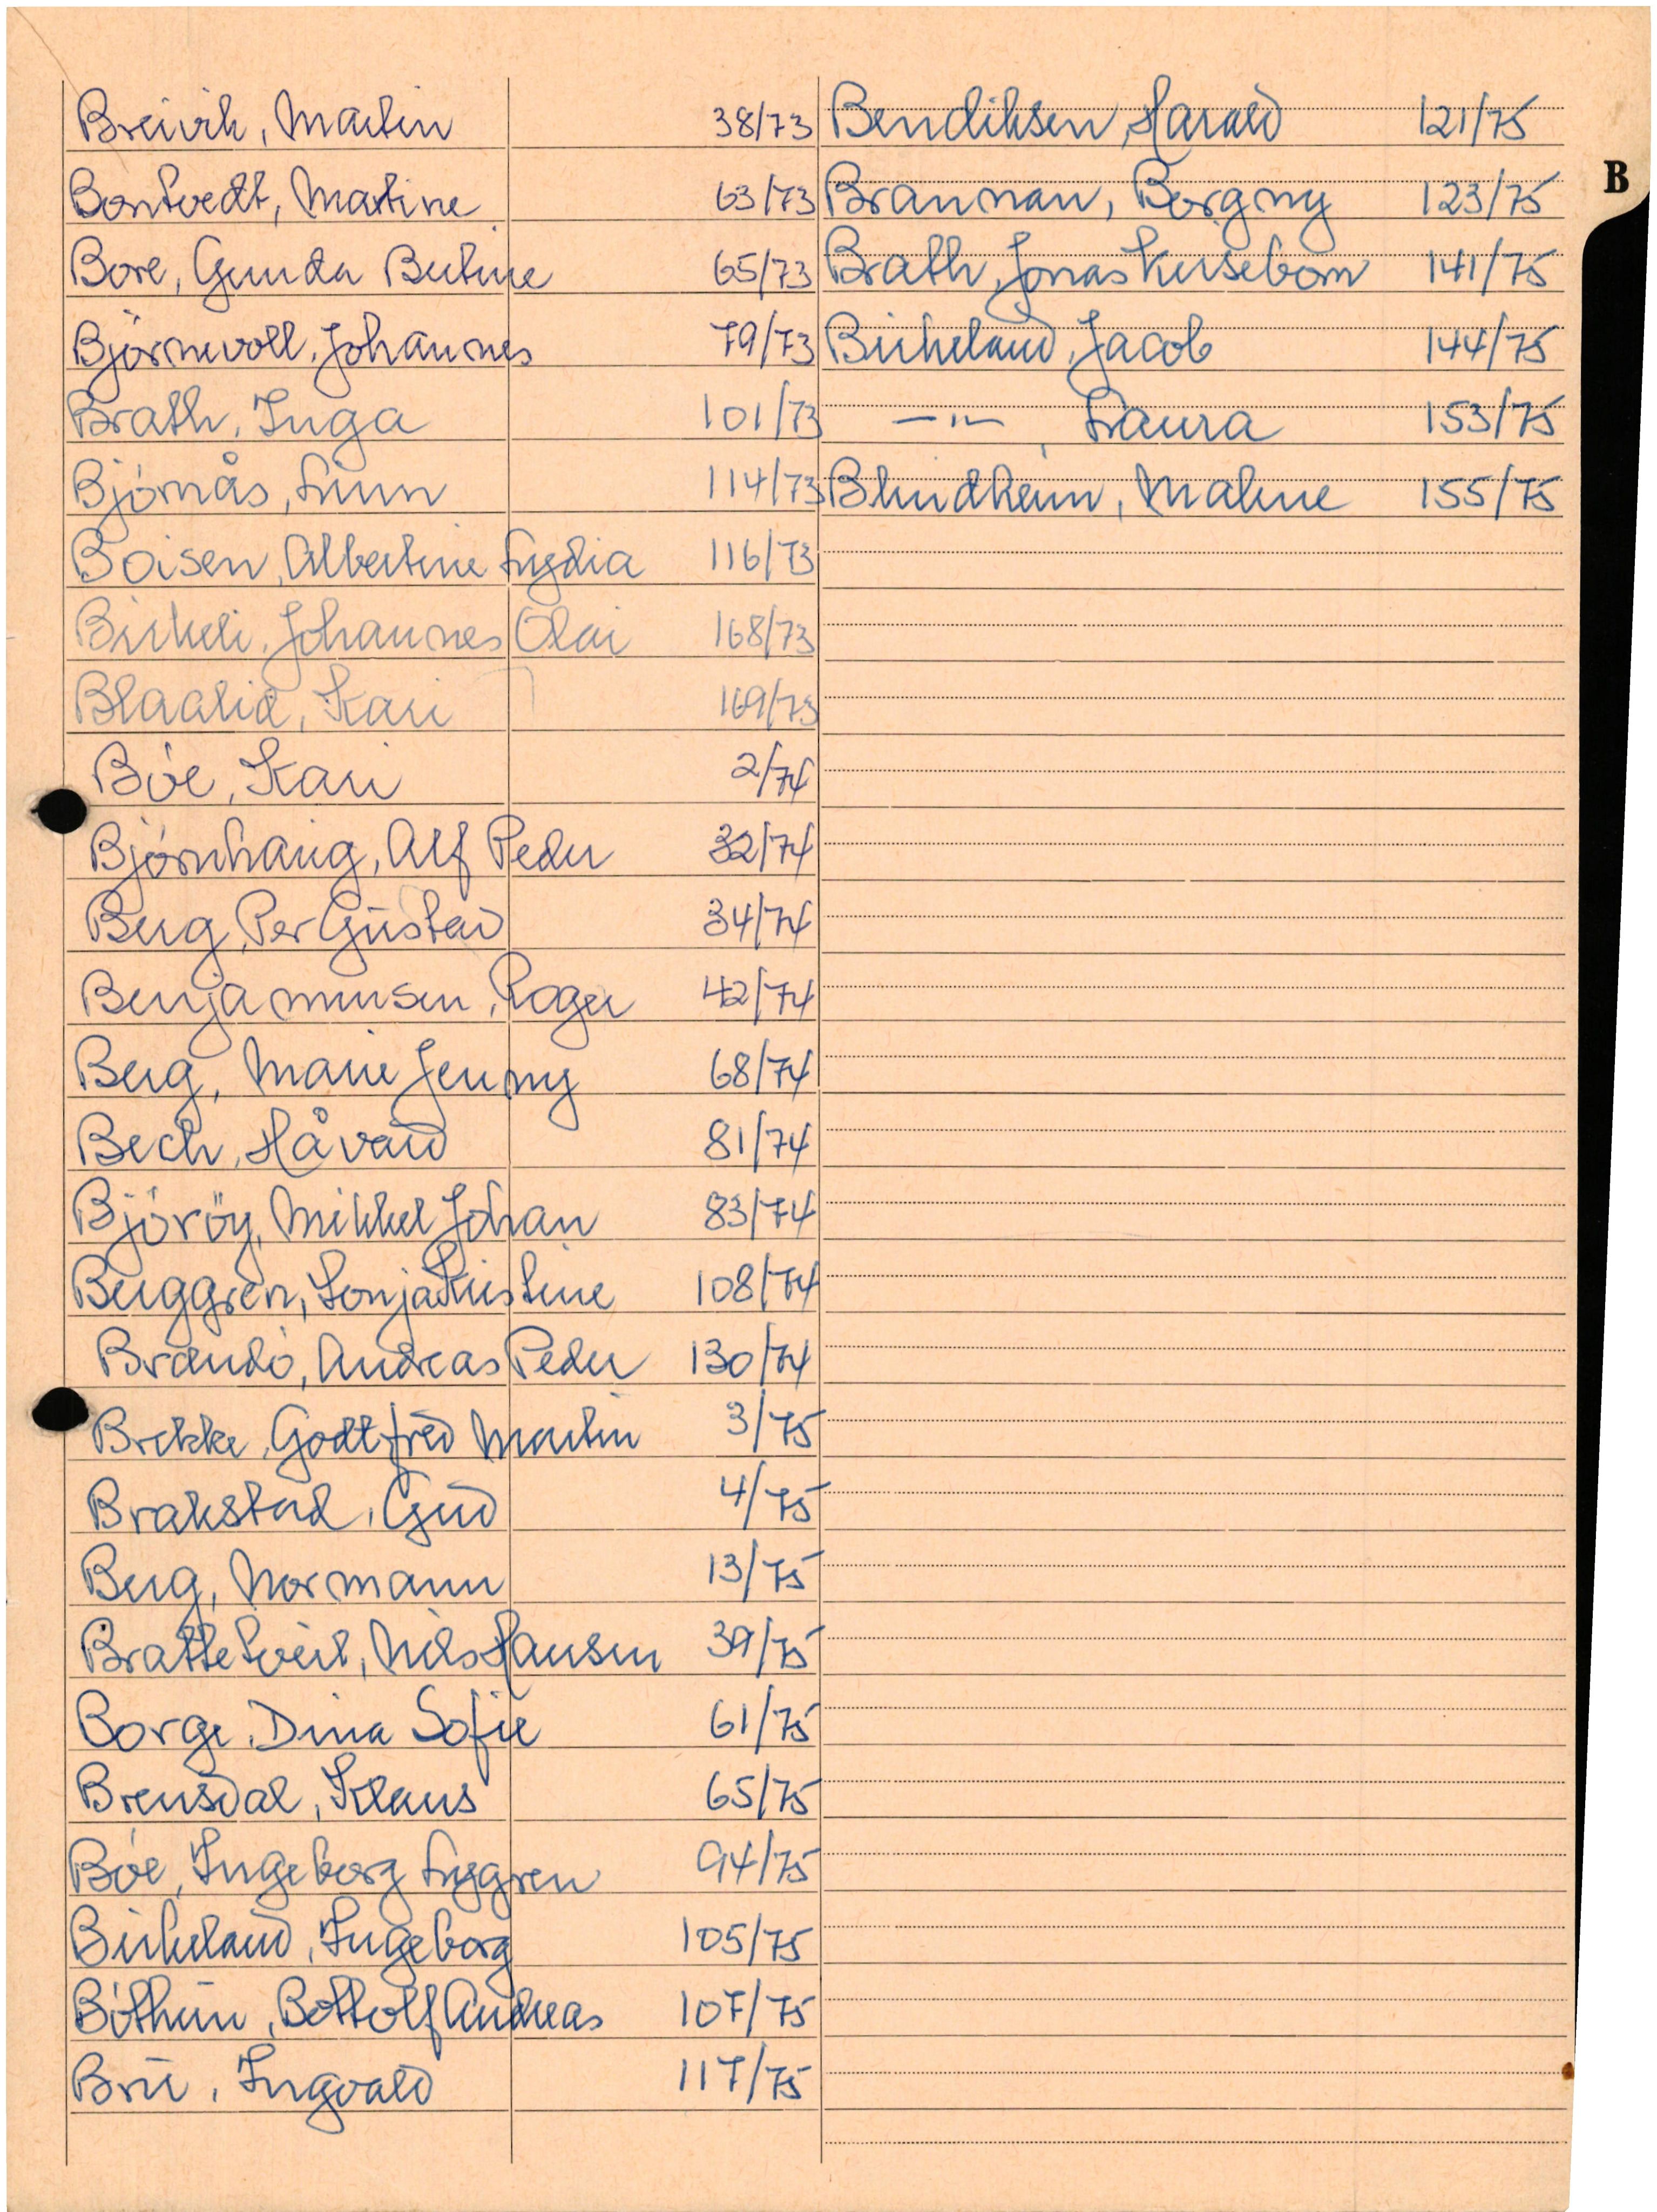 Breivik, Martin 38/73
Bontvedt, Martine 63/73
Bore, Gunda Bertine 65/73
Bjørnevoll, Johannes 79/73
Brath, Inga 101/73
Bjørnås, Linn 114/73
Boisen, Albertine Lydia 116/73
Birkeli, Johannes Olai 168/73
Blaalid, Kari 169/73
Bøe, Kari 2/74
Bjørnhaug, Alf Peder 32/74
Berg, Per Gustav 34/74
Benjaminsen, Roger 42/74
Berg, Marie Jenny 68/74
Bech, Håvard 81/74
Bjørøy, Mikkel Johan 83/74
Berggren, Sonja Kristine 108/74
Brændø, Andreas Peder 130/74
Brekke, Godtfred Martin 3/75
Brakstad, Gud 4/75
Berg, Normann 13/75
Brattetveit, Nils Hansen 39/75
Borge, Dina Sofie 61/75
Brensdal, Klaus 65/75
Bøe, Ingeborg Lyggren 94/75
Birkeland, Ingeborg 105/75
Bøthun, Bottolf Andreas 107/75
Bru, Ingvald 117/75
Bendiksen, Harald 121/75
B
Brannan, Borgny 123/75
Brath, Jonas Kirsebom 141/75
Birkeland, Jacob 144/75
—"— , Laura 153/75
Blindheim, Maline 155/75